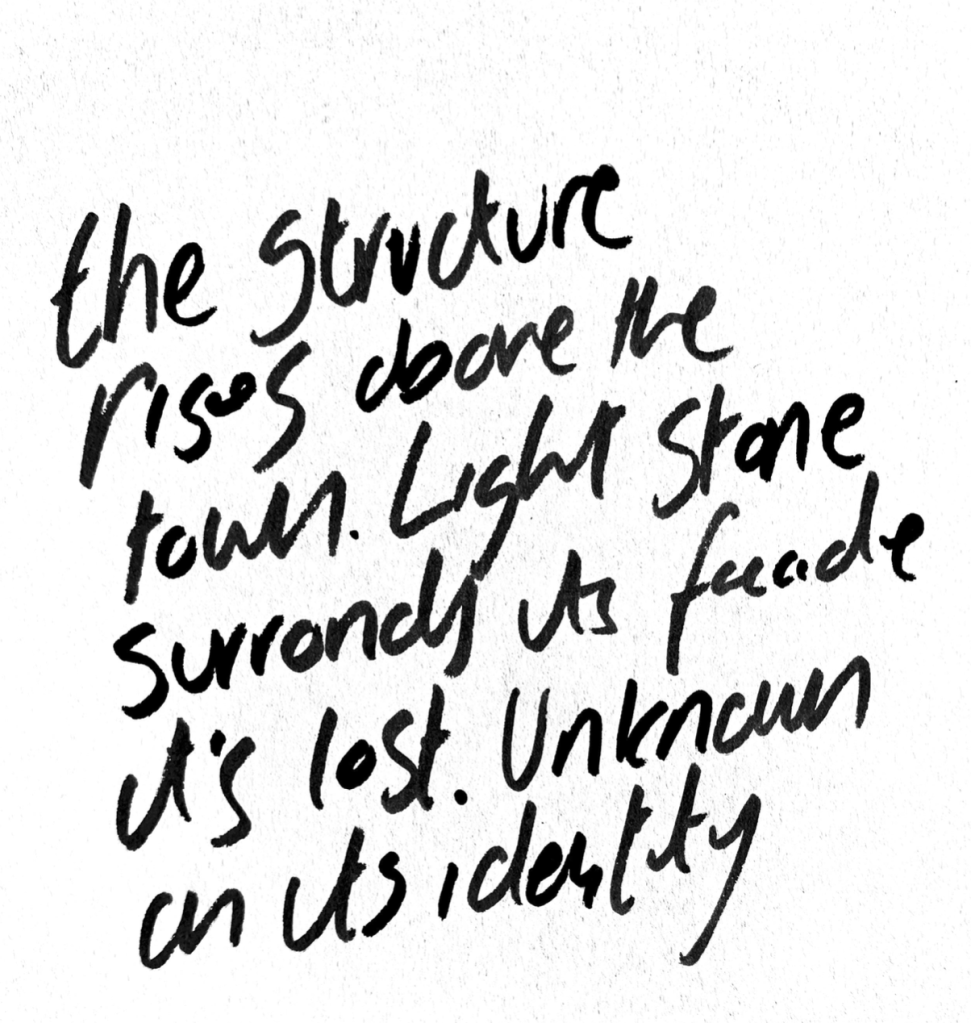 the structure
rises above the
town. Light stone
surronds its facade
it's lost. Unknown
on its identity